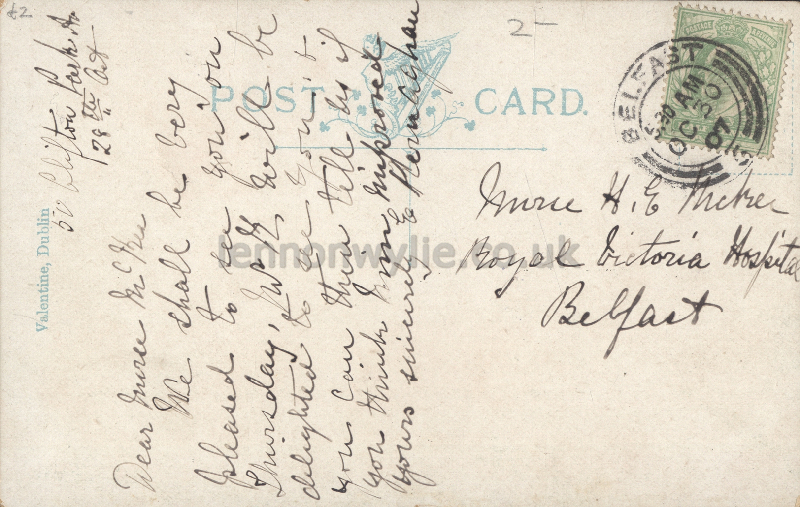 £2
2-
POST CARD.
BELFAST
5.30 AM
OC 30
07
Valentine, Dublin
50 Clifton Park Av
28th Oct
Dear Nurse McKee
We shall be very
pleased to see you on
Thursday, Mr K will be
delighted to see you &
you can then tell us if
you think I am improved
Yours sincerely E Kernaghan
Nurse H. E McKee
Royal Victoria Hospital
Belfast
lennonwylie.co.uk